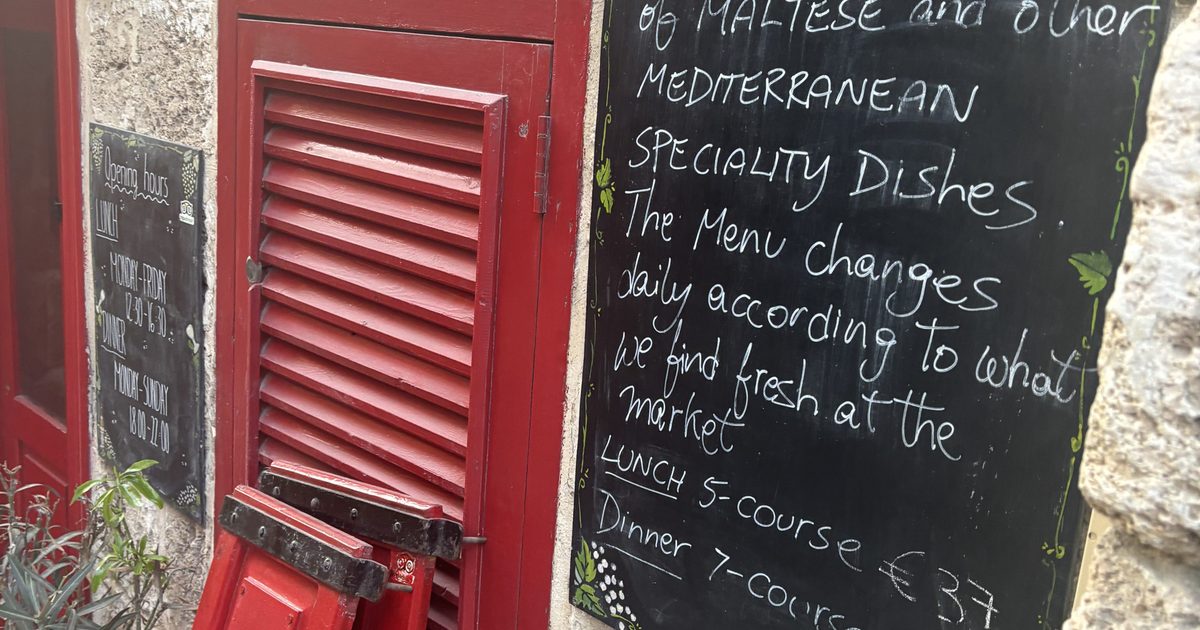 Opening hours
LUNCH
MONDAY-FRIDAY
12:30-16:30
DINNER
MONDAY-SUNDAY
18:00-22:00
of MALTESE and other
MEDITERRANEAN
SPECIALITY Dishes.
The Menu changes
daily according to what
we find fresh at the
market
LUNCH 5-course €37
Dinner 7-course